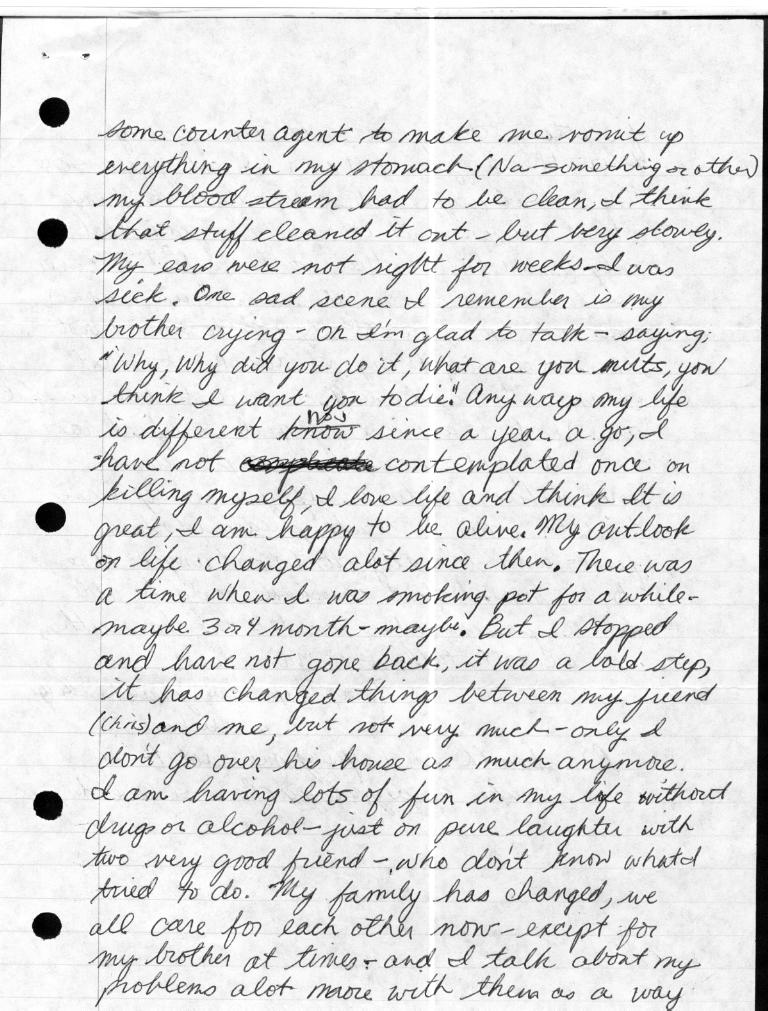 some counter agent to make me vomit up
everything in my stomach (Na-something or other)
my blood stream had to be clean, I think
that stuff cleaned it out - but very slowly.
My ears were not right for weeks - I was
sick. One sad scene I remember is my
brother crying - oh I'm glad to talk - saying;
"Why, Why did you do it, what are you nuts, you
think I want you to die." Any ways my life
is different know now since a year a go, I
have not contemplated once on
killing myself, I love life and think It is
great, I am happy to be alive. My outlook
on life changed alot since then. There was
a time when I was smoking pot for a while -
maybe 3 or 4 month - maybe. But I stopped
and have not gone back, it was a bold step,
it has changed things between my friend
(Chris) and me, but not very much - only I
don't go over his house as much anymore.
I am having lots of fun in my life without
drugs or alcohol - just on pure laughter with
two very good friend - who don't know what I
tried to do. My family has changed, we
all care for each other now - except for
my brother at times - and I talk about my
problems alot more with them as a way